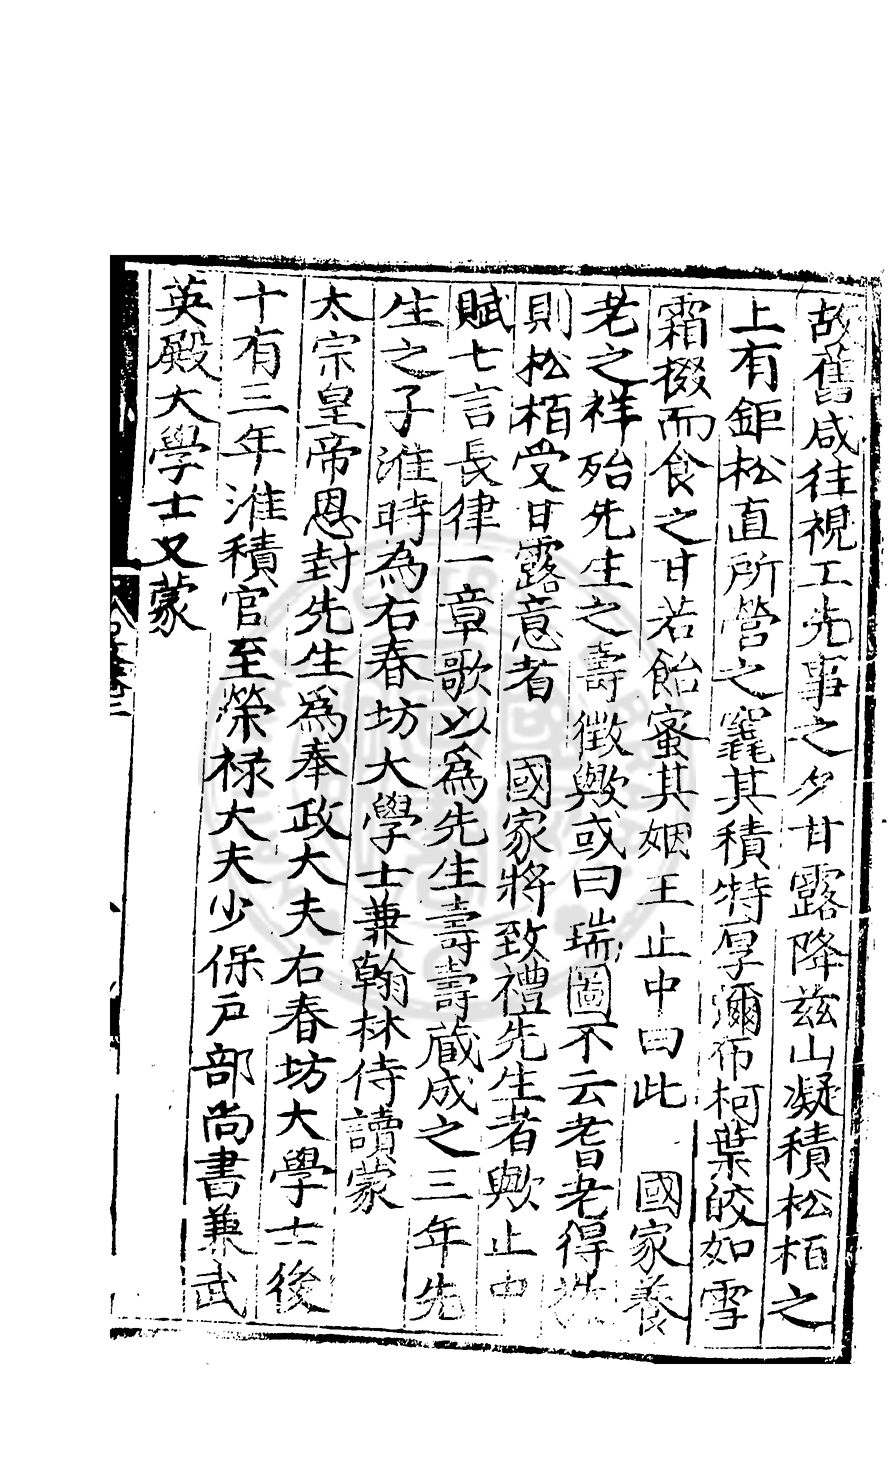 故舊咸往視工先事之夕甘露降茲山凝積松栢之
上有鉅松直所營之竁其積特厚瀰布柯葉皎如雪
霜掇而食之甘若飴蜜其姻王止中曰此　國家養
老之祥殆先生之壽徵歟或曰瑞圖不云耆老得
則松栢受甘露意者　國家將致禮先生者歟止中
賦七言長律一章歌以為先生壽壽蔵成之三年先
生之子淮時為右春坊大學士兼翰林侍讀蒙
太宗皇帝恩封先生爲奉政大夫右春坊大學士後
十有三年淮積官至榮祿大夫少保戶部尚書兼武
英殿大學士又蒙